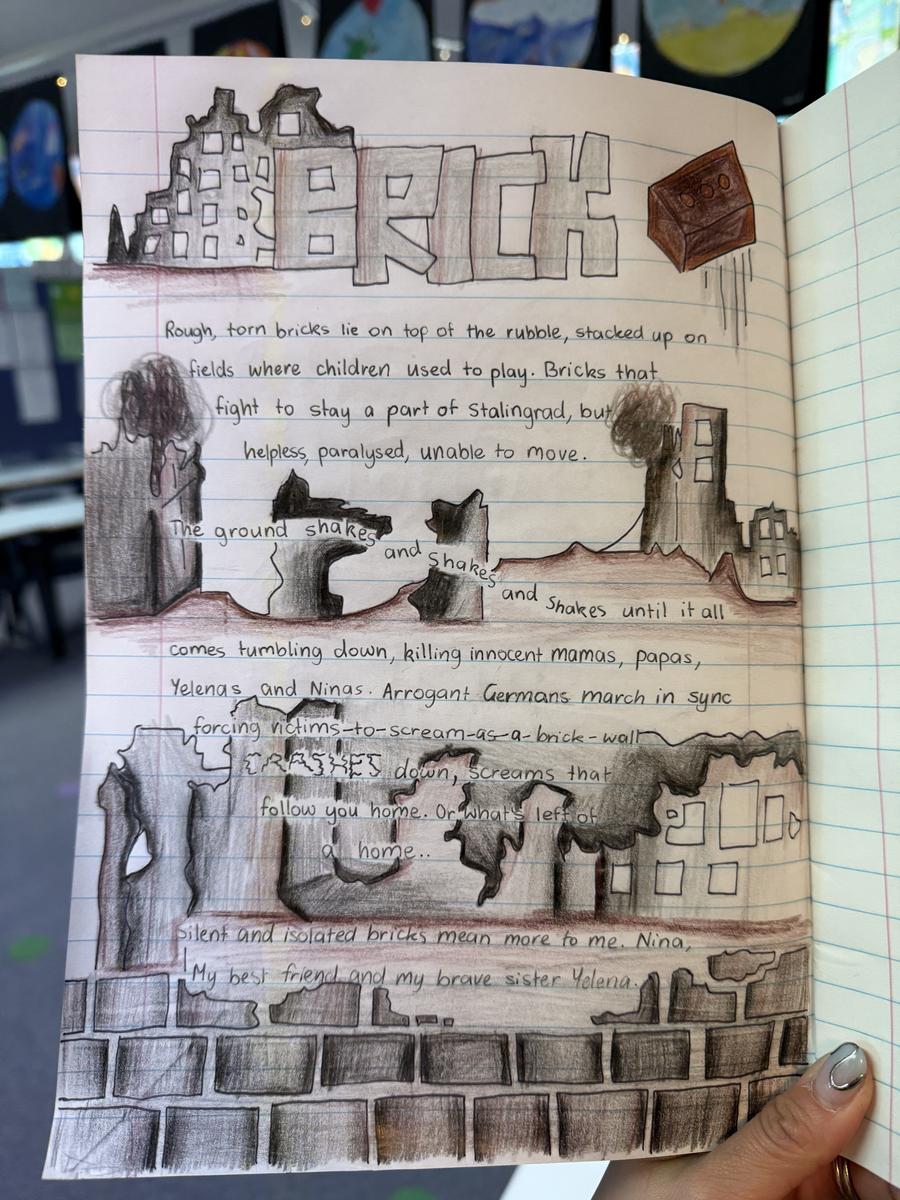 BRICK
Rough, torn bricks lie on top of the rubble, stacked up on
fields where children used to play. Bricks that
fight to stay a part of Stalingrad, but
helpless, paralysed, unable to move.
The ground shakes and shakes and shakes until it all
comes tumbling down, killing innocent mamas, papas,
Yelenas and Ninas. Arrogant Germans march in sync
forcing victims-to-scream-as-a-brick-wall
CRASHES down, screams that
follow you home. Or what's left of
a home..
Silent and isolated bricks mean more to me. Nina,
My best friend and my brave sister Yelena.